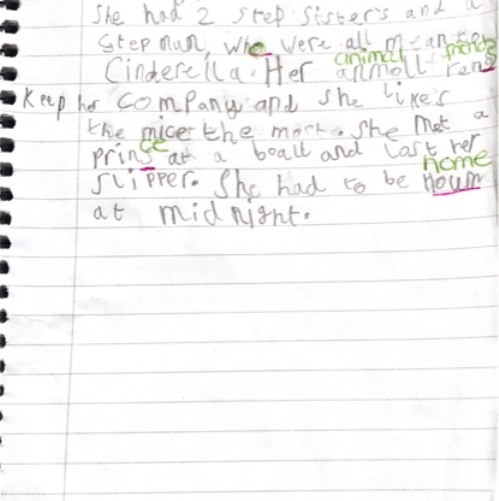 She had 2 step sister's and a
step mum, who were all mean to
animal friends
Cinderella. Her anmoll fens
keep her company and she likes
the micer the most. She met a
ce
prins at a boall and last her
home
slipper. She had to be Houm
at midnight.